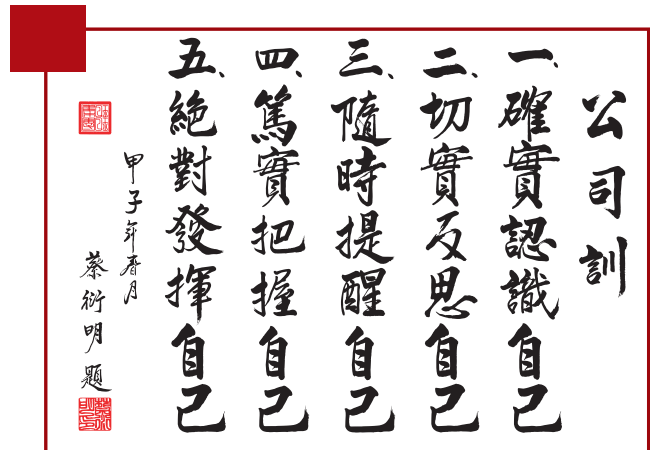 公司訓
一、確實認識自己
二、切實反思自己
三、隨時提醒自己
四、篤實把握自己
五、絕對發揮自己
甲子年春月
蔡衍明題